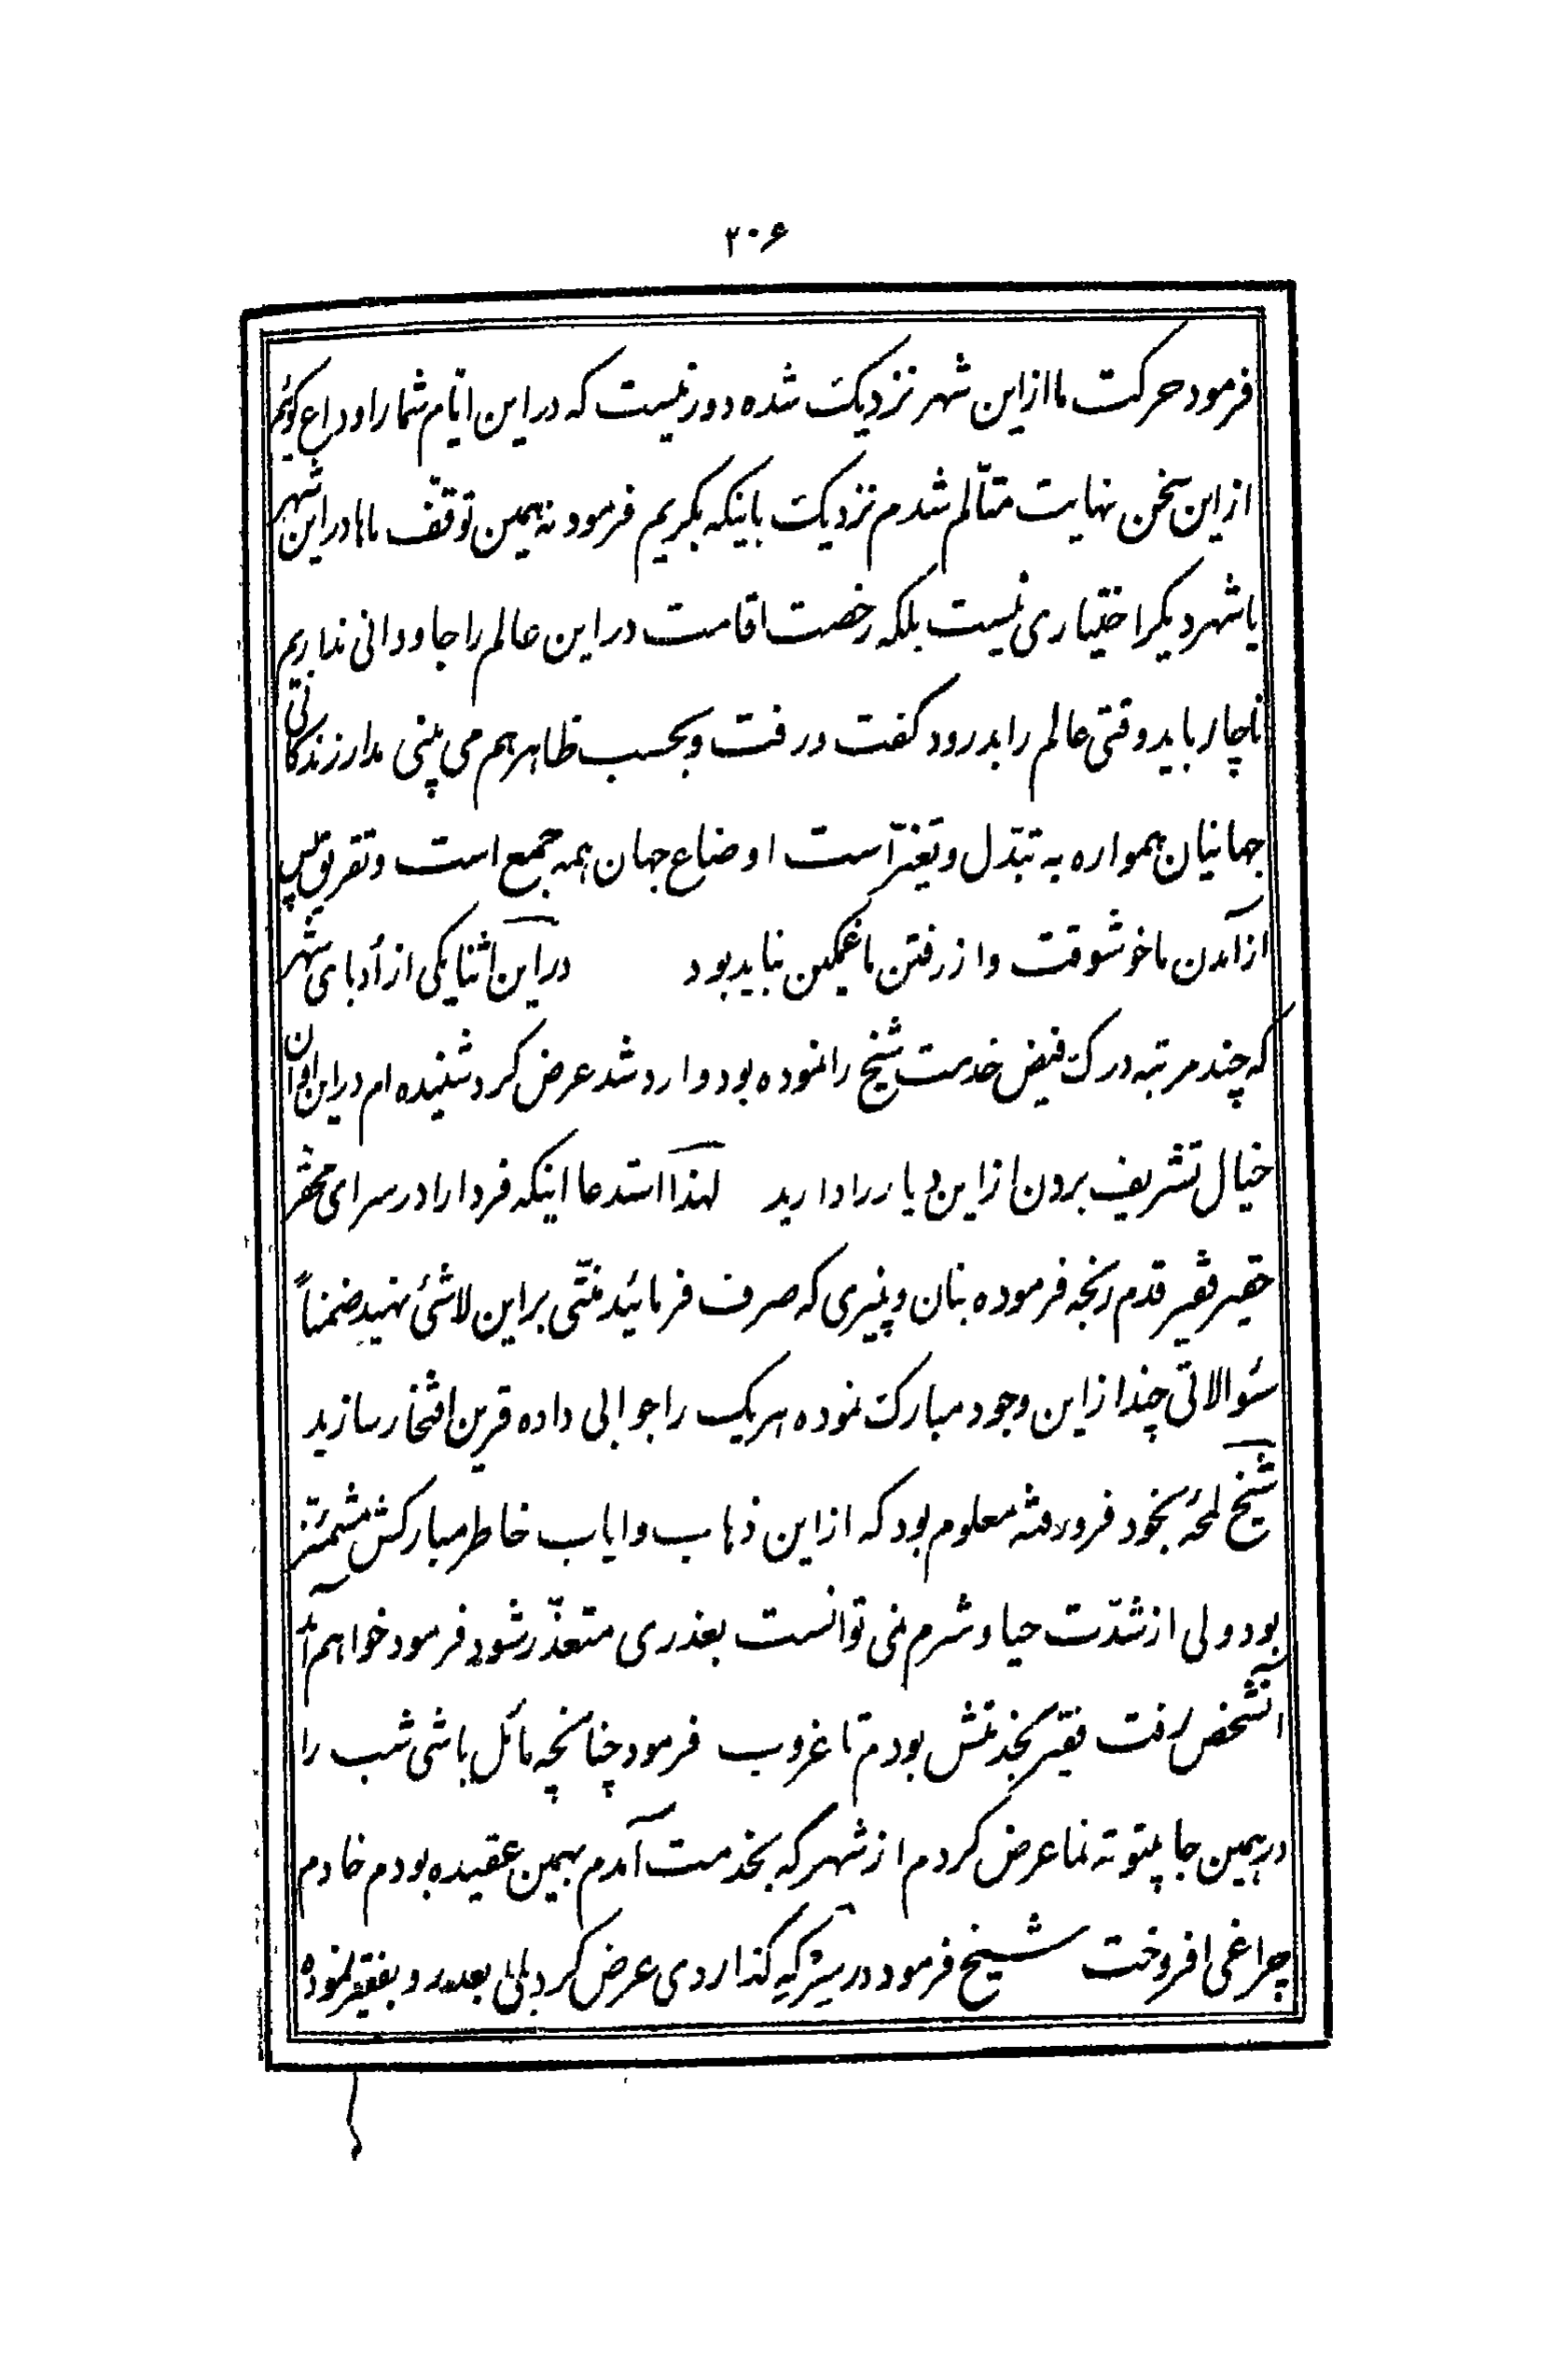 ۲۰۶
فرمود حرکت ما از این شهر نزدیک شده دور نیست که در این ایّام شما را وداع گوئیم
از این سخن نهایت متألّم شدم نزدیک باینکه بگریم فرمود نه همین توقّف ماها در این شهر
یا شهر دیگر اختیاری نیست بلکه رخصت اقامت در این عالم را جاودانی نداریم
ناچار باید وقتی عالم را بدرود گفت و رفت و بحسب ظاهر هم می بینی مدار زندگانی
جهانیان همواره به تبدّل و تغیّر است اوضاع جهان همه جمع است و تفریق پس
از آمدن ما خوشوقت و از رفتن ما غمگین نباید بود در این اثنا یکی از أدبای شهر
که چند مرتبه درک فیض خدمت شیخ را نموده بود وارد شد عرض کرد شنیده ام در این اوان
خیال تشریف بردن از این دیار را دارید لهذا استدعا اینکه فردا را در سرای محقر
حقیر فقیر قدم رنجه فرموده بنان و پنیری که صرف فرمائید منّتی بر این لاشئ نهید ضمناً
سئوالاتی چند از این وجود مبارک نموده هر یک را جوابی داده قرین افتخار سازید
شیخ لمحهٔ بخود فرو رفته معلوم بود که از این ذهاب و ایاب خاطر مبارکش مشمئزّ
بود ولی از شدّت حیا و شرم نمی توانست بعذری متعذّر شود فرمود خواهم آمد
آنشخص رفت فقیر بخدمتش بودم تا غروب فرمود چنانچه مائل باشی شب را
در همین جا بیتوته نما عرض کردم از شهر که بخدمت آمدم بهمین عقیده بودم خادم
چراغی افروخت شیخ فرمود در سر که گذاردی عرض کرد بلی بعد رو بفقیر نموده